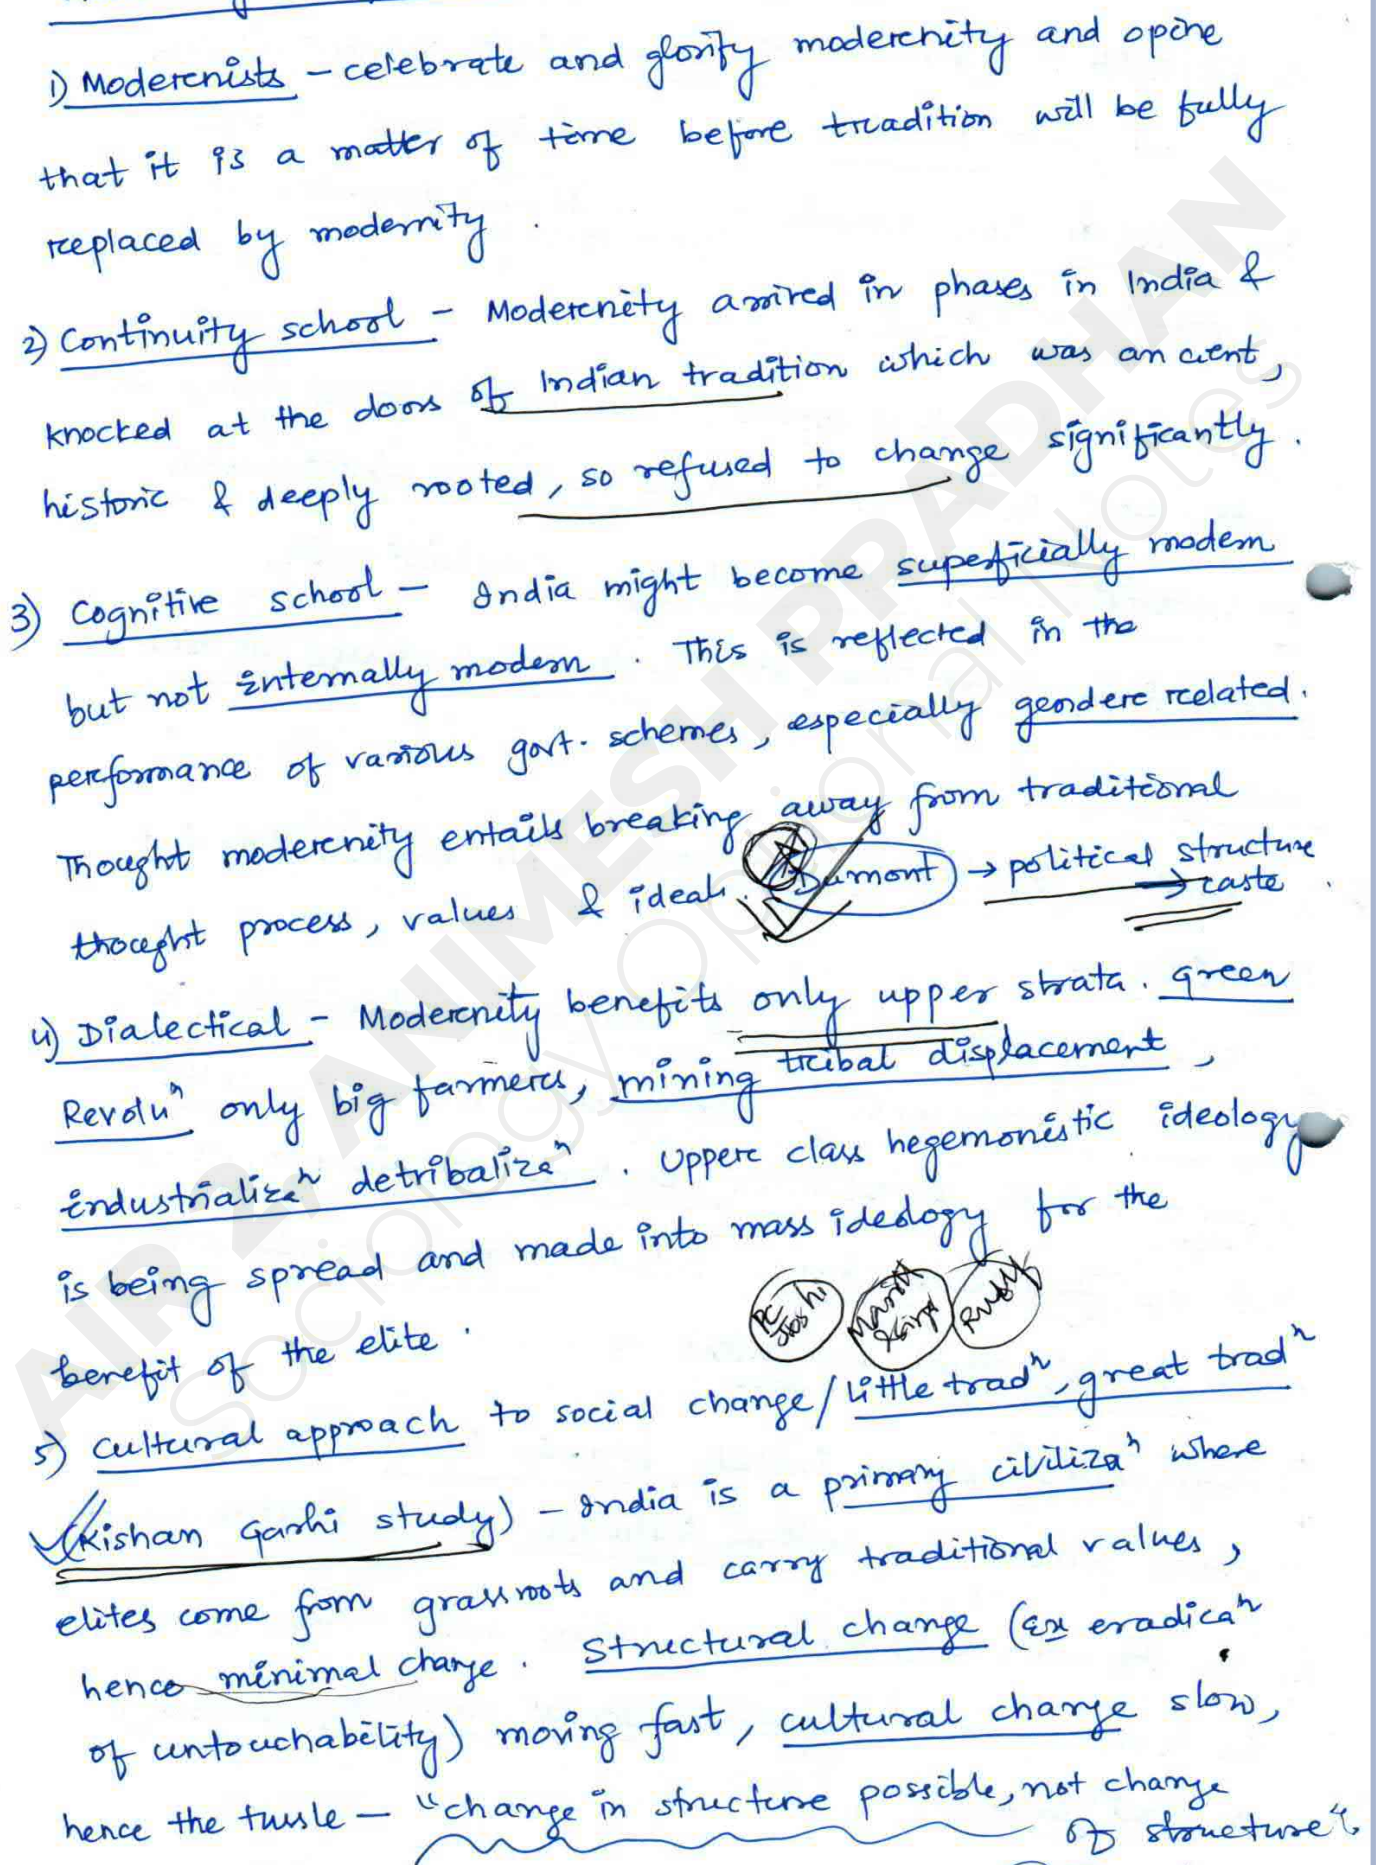 1) Moderenists - celebrate and glorify moderenity and opine
that it is a matter of time before tradition will be fully
replaced by modernity.
2) Continuity school - Moderenity arrived in phases in India &
knocked at the doors of Indian tradition which was ancient,
historic & deeply rooted, so refused to change significantly.
3) Cognitive school - India might become superficially modern
but not internally modern. This is reflected in the
performance of various govt. schemes, especially gendere related.
Thought moderenity entails breaking away from traditional
thought process, values & ideals. Dumont → political structure
→ caste
4) Dialectical - Moderenity benefits only upper strata. Green
Revoluⁿ only big farmers, mining tribal displacement,
industrializeⁿ detribalizeⁿ. Uppere class hegemonistic ideology
is being spread and made into mass ideology for the
benefit of the elite.
PC Joshi
5) Cultural approach to social change / little tradⁿ, great tradⁿ
(Kishan Garhi study) - India is a primary civilizaⁿ where
elites come from grassroots and carry traditional values,
hence minimal change. Structural change (Ex eradicaⁿ
of untouchability) moving fast, cultural change slow,
hence the tussle - "change in structure possible, not change
of structure".
AIR 2, ANIMESH PRADHAN
Sociology Optional Notes